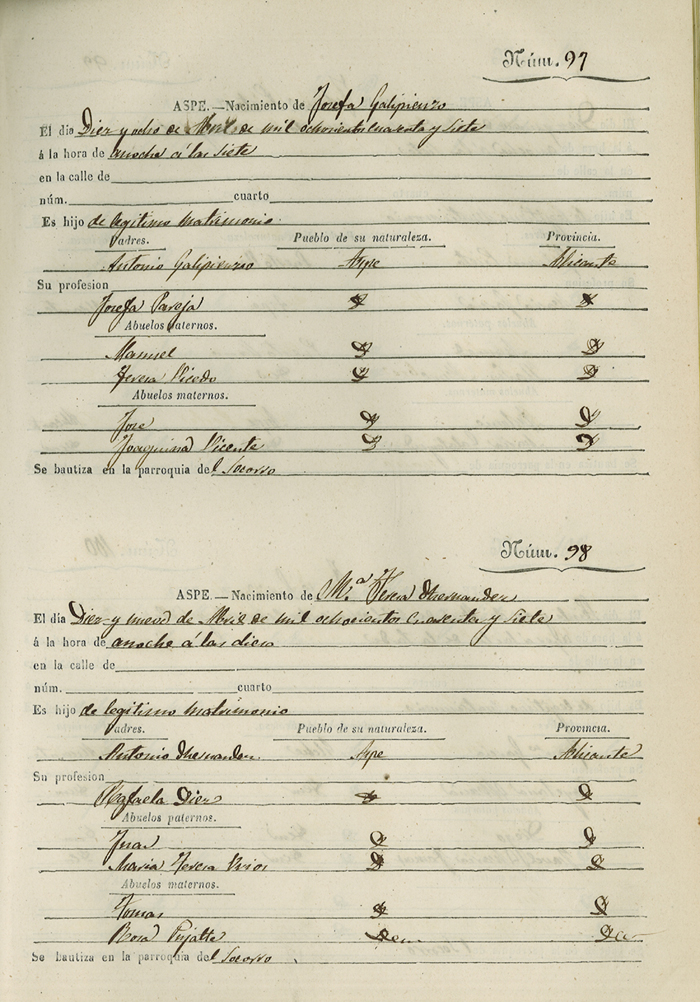 Núm. 97
ASPE.—Nacimiento de Josefa Galipienzo
El dia Diez y ocho de Abril de mil ochocientos cuarenta y siete
á la hora de anoche á las siete
en la calle de
núm. cuarto
Es hijo de legitimo matrimonio
Padres. Pueblo de su naturaleza. Provincia.
Antonio Galipienzo Aspe Alicante
Su profesion
Josefa Pareja
Abuelos paternos.
Manuel
Teresa Vicedo
Abuelos maternos.
Jose
Joaquina Vicente
Se bautiza en la parroquia del Socorro
Núm. 98
ASPE.—Nacimiento de M.ª Teresa Hernandez
El dia Diez y nueve de Abril de mil ochocientos cuarenta y siete
á la hora de anoche á las diez
en la calle de
núm. cuarto
Es hijo de legitimo matrimonio
Padres. Pueblo de su naturaleza. Provincia.
Antonio Hernandez Aspe Alicante
Su profesion
Rafaela Diez
Abuelos paternos.
Juan
Maria Teresa
Abuelos maternos.
Tomas
Rosa Pujalte
Se bautiza en la parroquia del Socorro